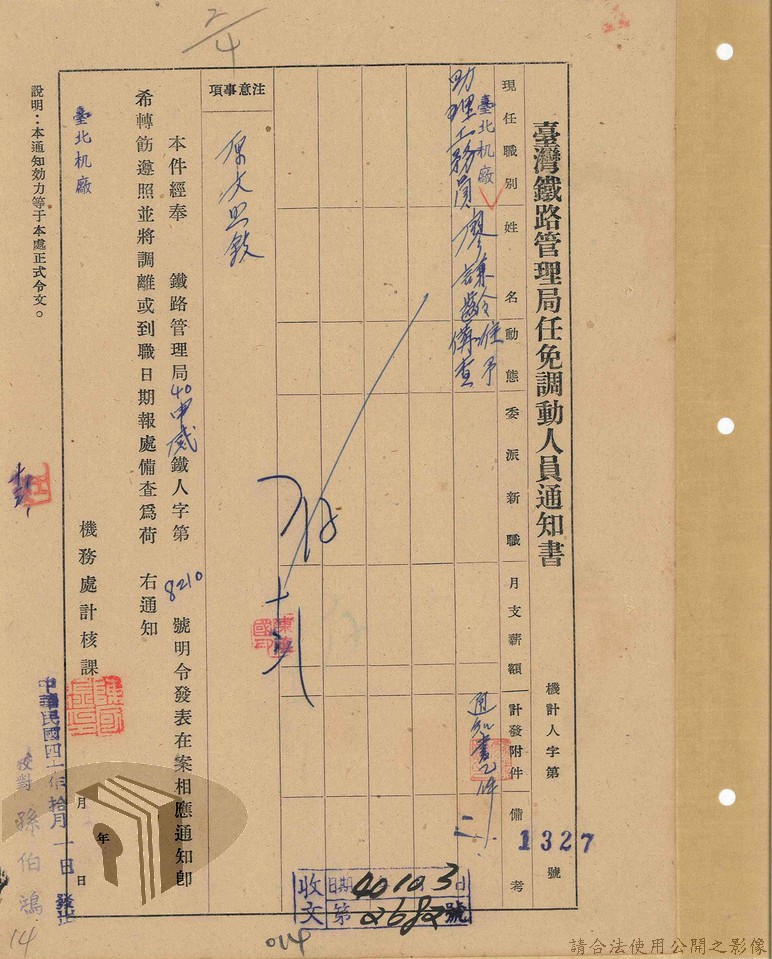 臺灣鐵路管理局任免調動人員通知書
機計人字第1327號
現任職別
姓名
動態
委派新職
月支薪額
計發附件
備考
臺北机廠
助理工務員
廖謙齡
准予備查
通知書乙件
注意事項
本件經奉 鐵路管理局40申感鐵人字第8210號明令發表在案相應通知卽
希轉飭遵照並將調離或到職日期報處備查爲荷 右通知
臺北机廠
機務處計核課
中華民國四十年拾月一日 發出
年月日
校對 孫伯鴻
說明：本通知効力等于本處正式令文。
收文
日期 40 10. 3
第 2682 號
2/4
014
14
請合法使用公開之影像